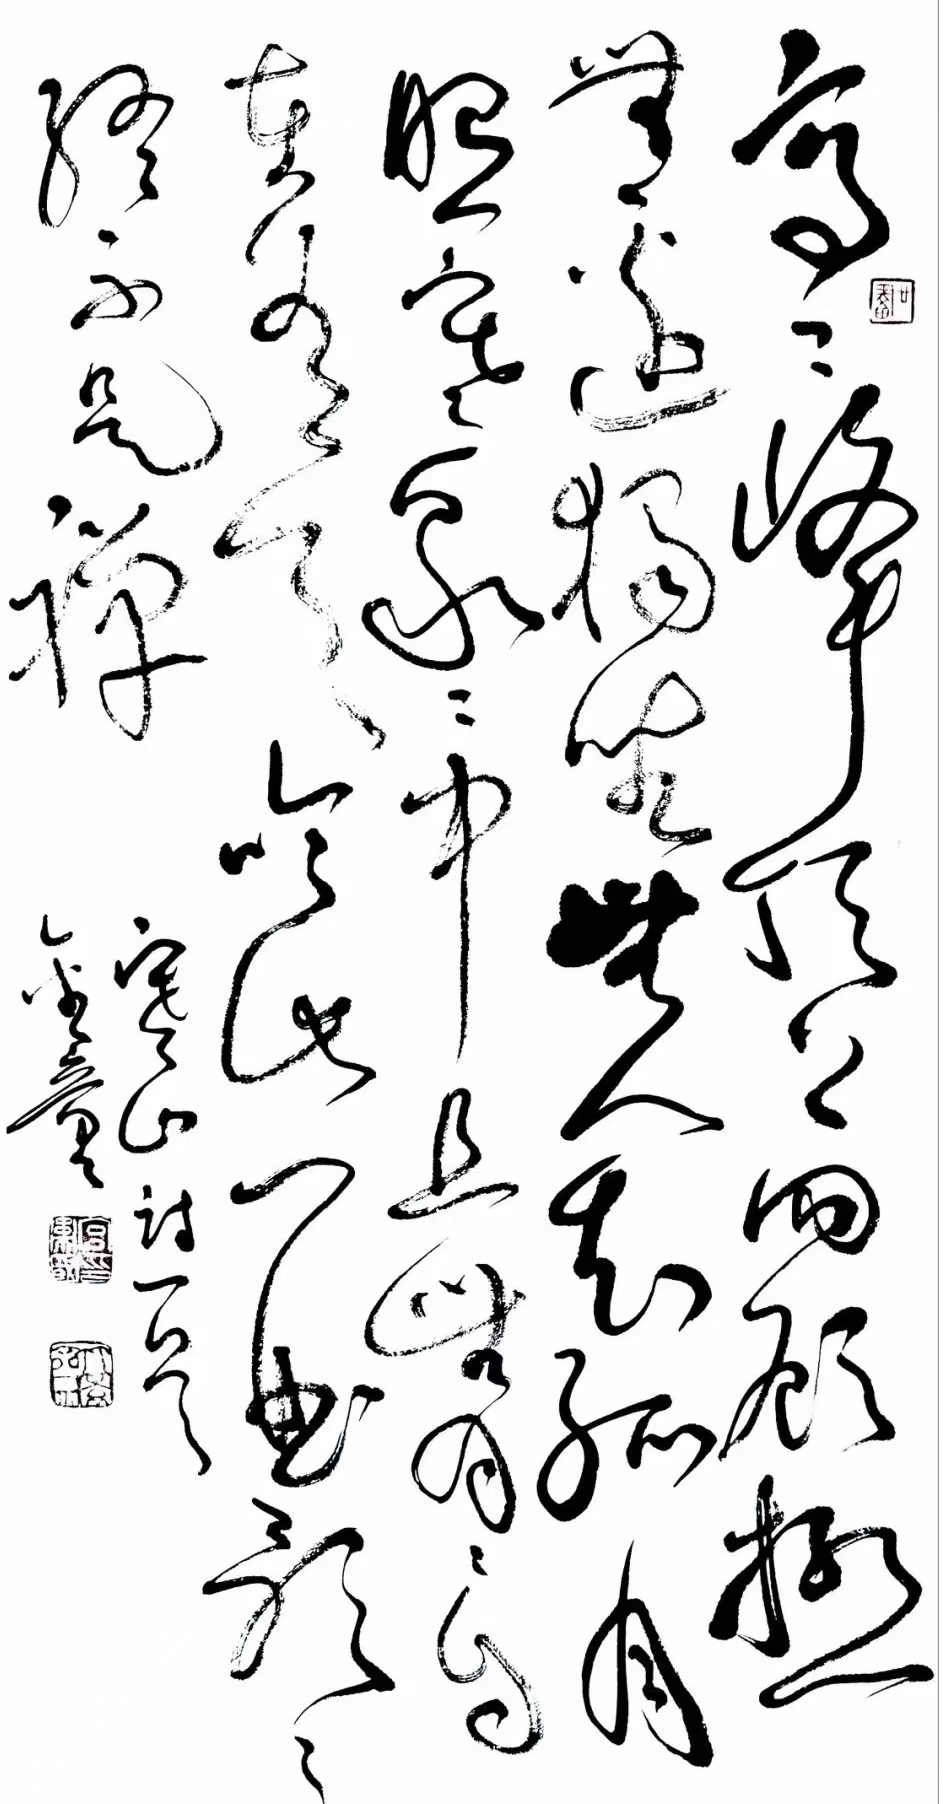 高々峰頂上四顧極
無邊獨坐無人知孤月
照寒泉々中且無月々自
在青天吟此一曲歌々
終不是禪
寒山詩一首